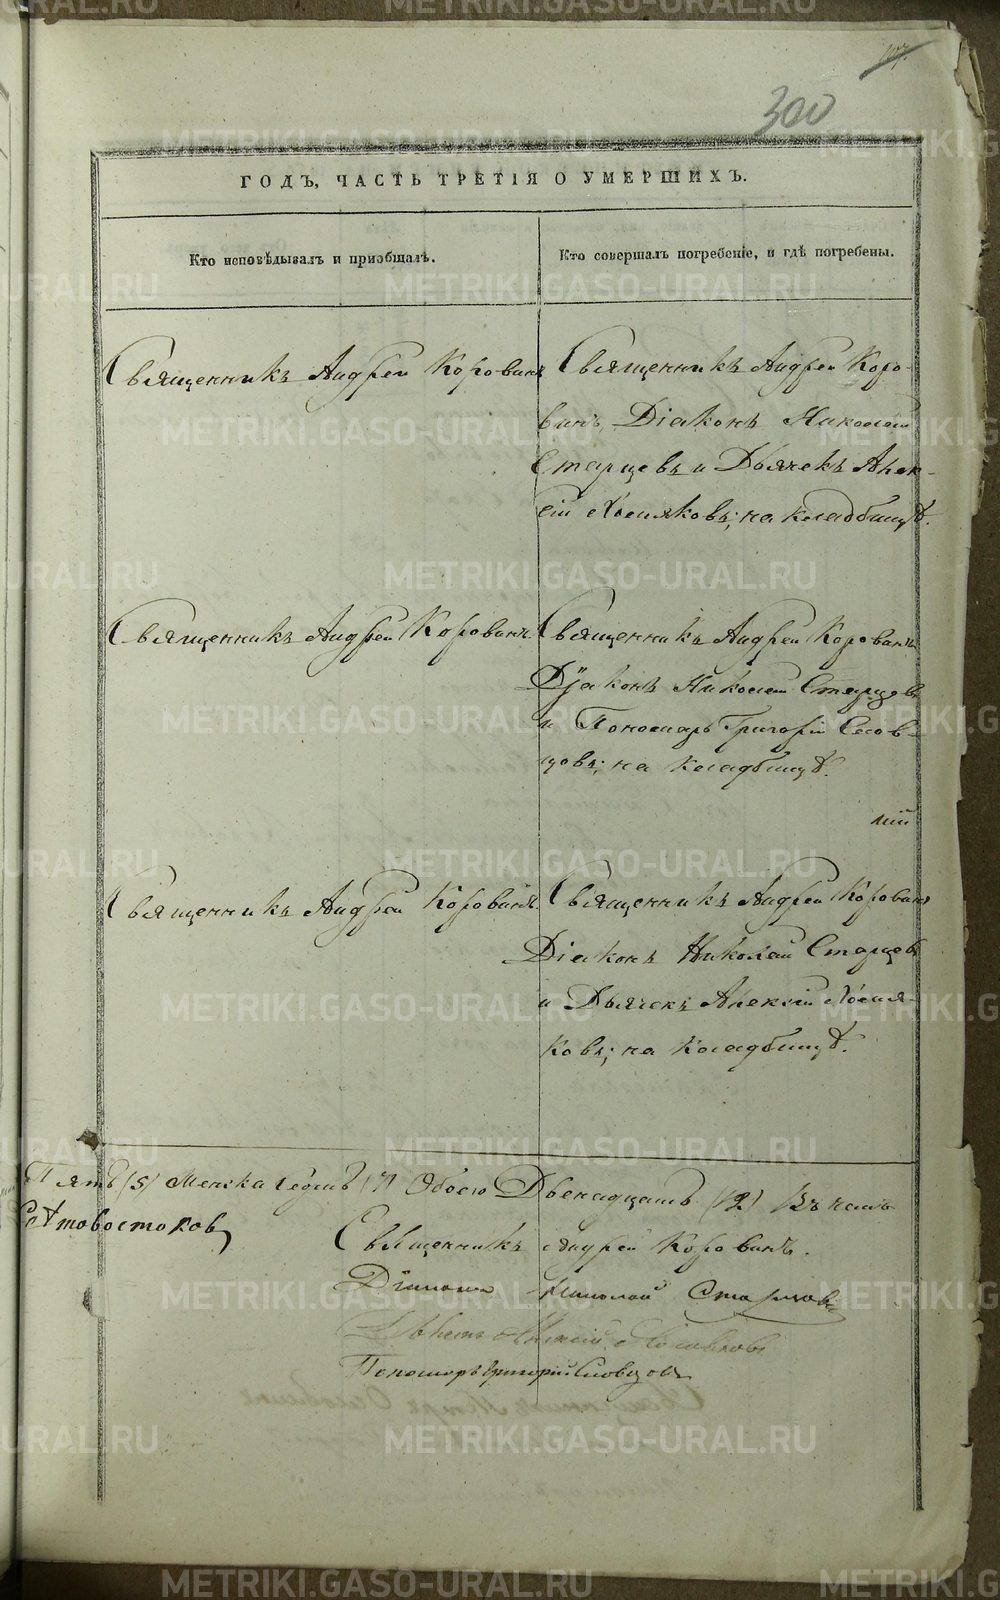 300
ГОДЪ, ЧАСТЬ ТРЕТІЯ О УМЕРШИХЪ.
Кто исповѣдывалъ и пріобщалъ.
Кто совершалъ погребеніе, и гдѣ погребены.
Священникъ Андрей Коровинъ
Священникъ Андрей Коро-
винъ, Діаконъ Николай
Старцевъ и Дьячекъ Алек-
сій Хомяковъ; на кладбищѣ.
Священникъ Андрей Коровинъ
Священникъ Андрей Коровинъ
Діаконъ Николай Старцевъ
и Пономарь Григорій Слов-
цовъ; на кладбищѣ.
Священникъ Андрей Коровинъ
Священникъ Андрей Коровинъ
Діаконъ Николай Старцевъ
и Дьячекъ Алексій Хомя-
ковъ; на кладбищѣ.
Пять (5) Женска Седмь (7) Обоего Двенадцать (12) Въ чемъ
Священникъ Андрей Коровинъ.
Діаконъ Николай Старцовъ
Пономарь Григорій Словцовъ
METRIKI.GASO-URAL.RU